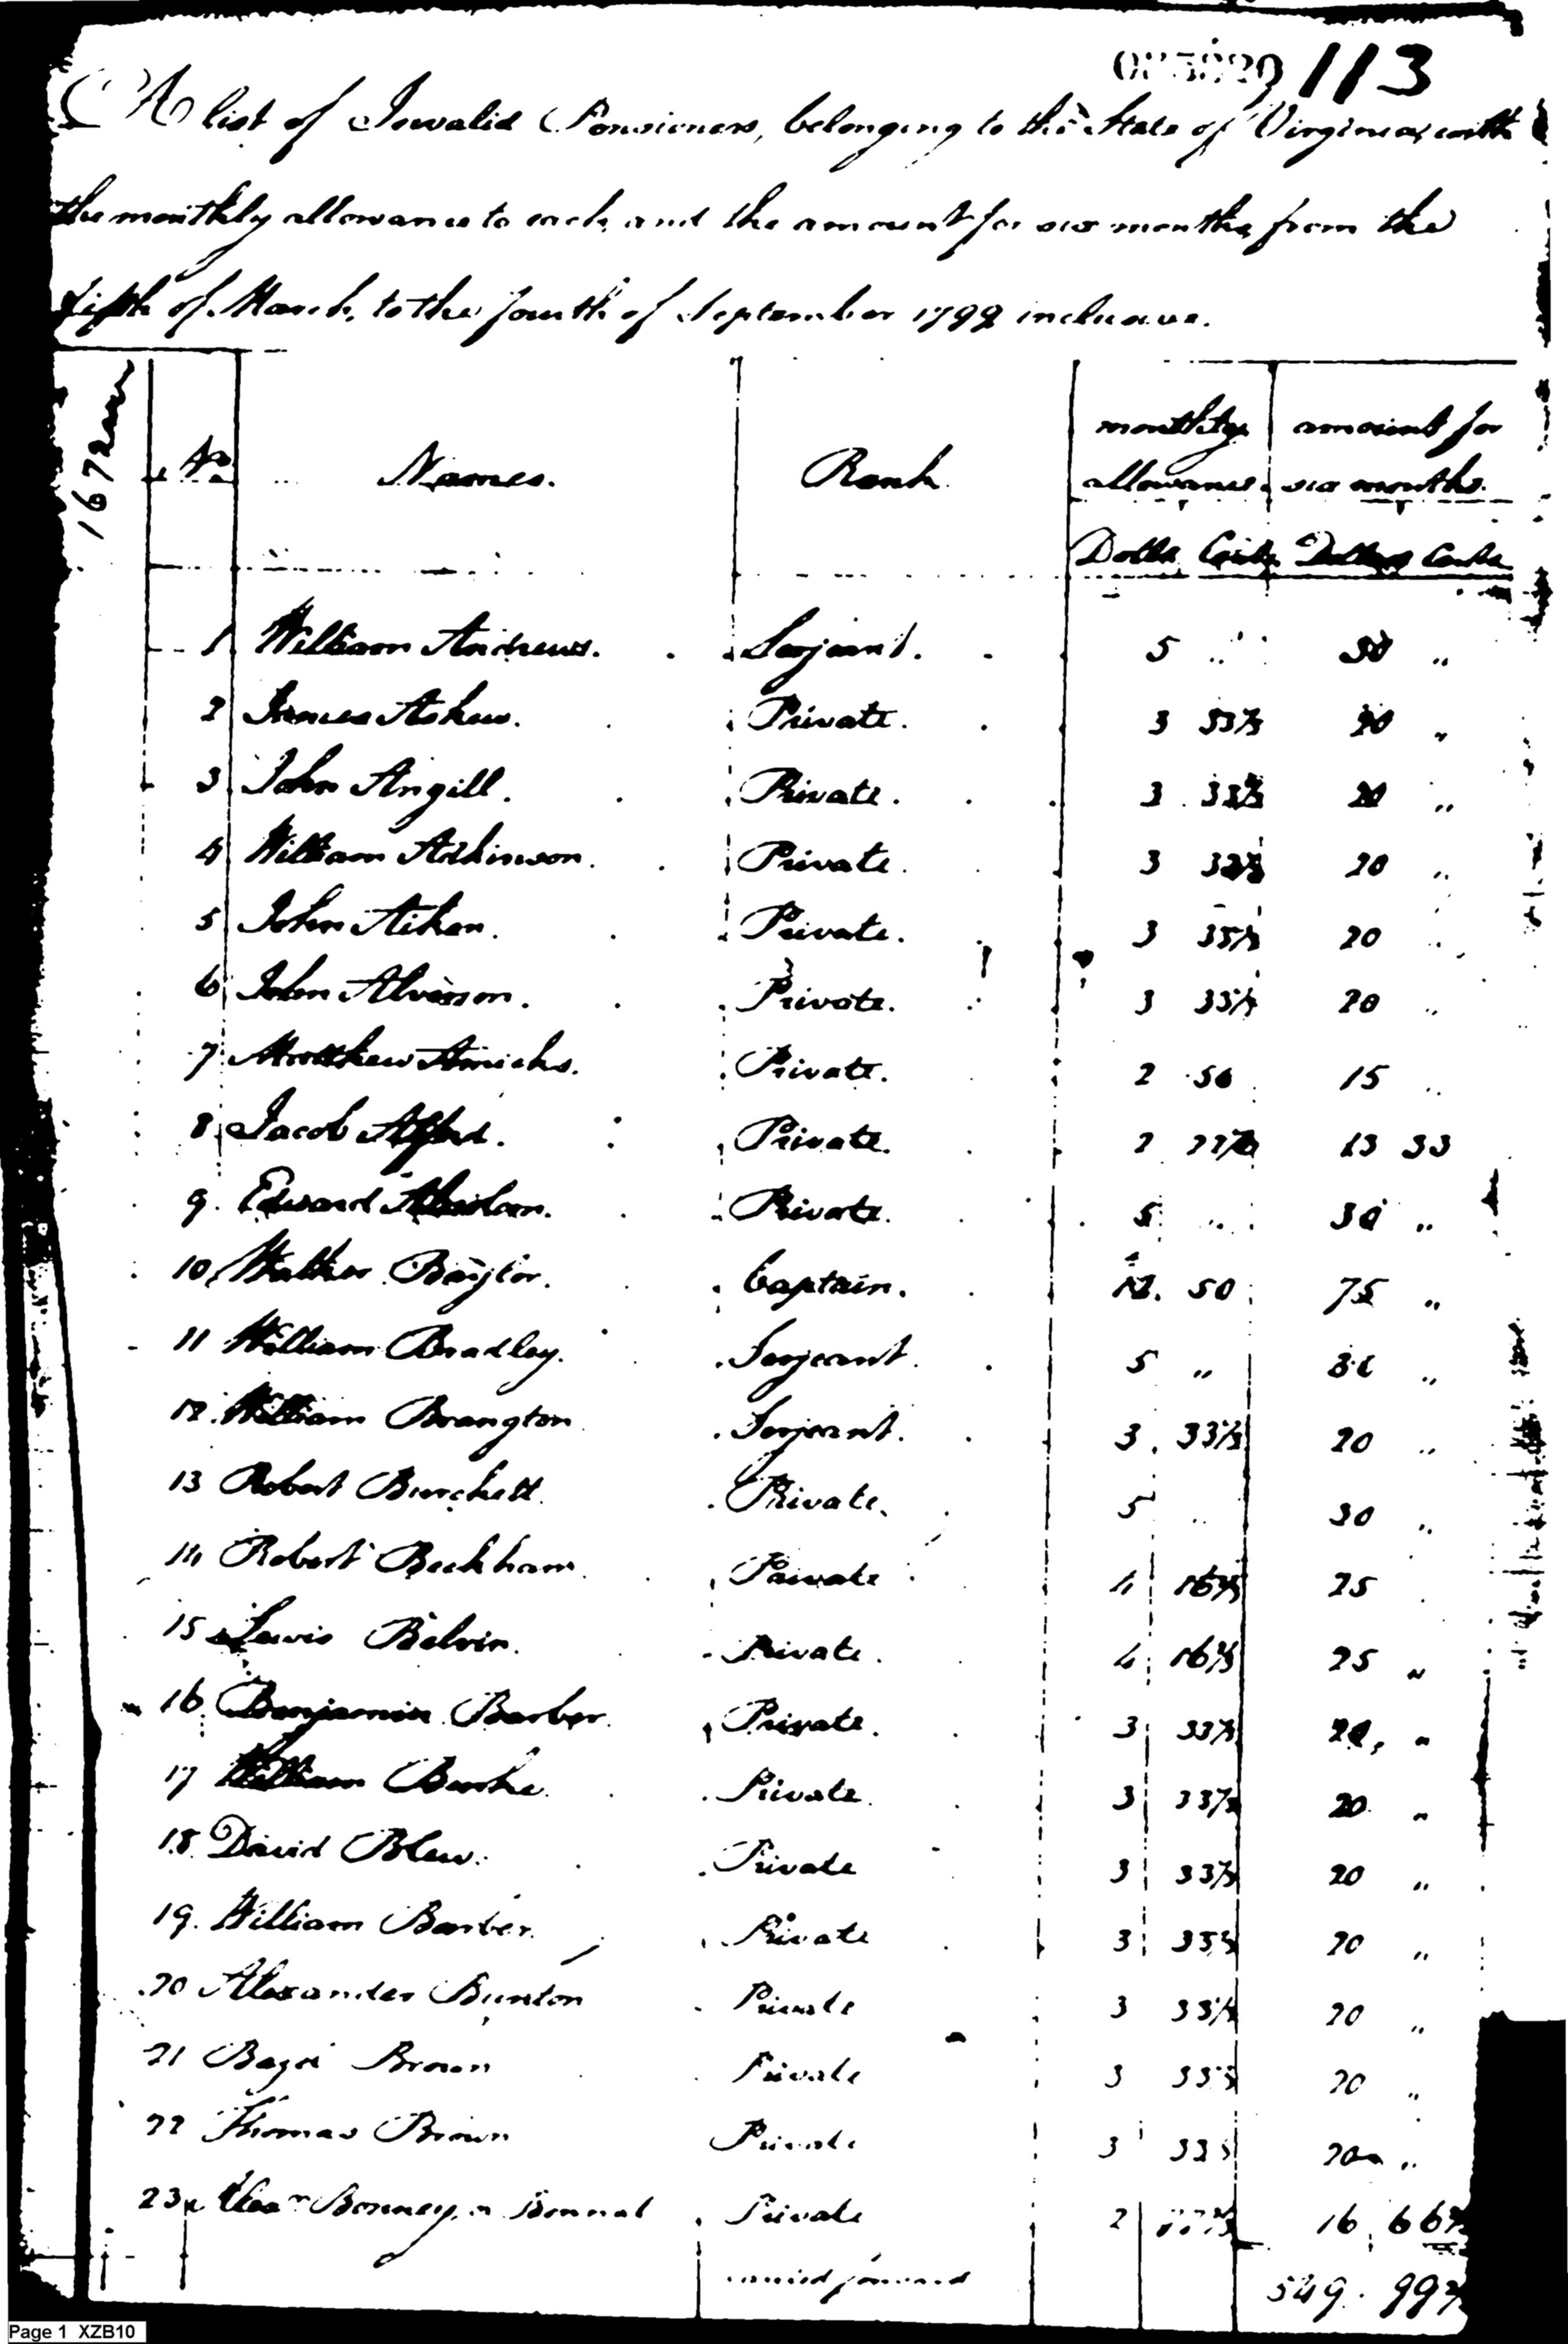 113
A list of Invalid Pensioners, belonging to the State of Virginia, with
the monthly allowance to each, and the amount for six months, from the
fifth of March, to the fourth of September 1792 inclusive.
No Names. Rank monthly allowance amount for six months.
Dolls Cents Dollars Cents
1 William Andrews. Serjeant. 5 " 30 "
2 James Askew. Private. 3 33⅓ 20 "
3 John Angill. Private. 3 33⅓ 20 "
4 William Adkinson. Private. 3 33⅓ 20 "
5 John Aiken. Private. 3 33⅓ 20
6 John Alvisson. Private. 3 33⅓ 20 "
7 Matthew Amicks. Private. 2 50 15 "
8 Jacob Private. 2 13 33
9. Edward Private. 5 " 30 "
10 Walker Baylor. Captain. 12. 50 75 "
11 William Bradley. Serjeant. 5 " 30 "
12. William Brangton Serjeant. 3. 33⅓ 20 "
13 Robert Burchett. Private. 5 " 30 "
14 Robert Beckham. Private 4 16⅔ 25
15 Lewis Belvin. Private. 4 16⅔ 25 "
16 Benjamin Barber. Private. 3 33⅓ 20, "
17 William Burke. Private. 3 33⅓ 20 "
18. David Blew. Private 3 33⅓ 20 "
19. William Barber. Private 3 33⅓ 20 "
20 Alexander Bunton Private 3 33⅓ 20 "
21 Brown Private 3 33⅓ 20 "
22 Thomas Brown Private 3 33⅓ 20 "
23 Bonney, or Bonnal Private 2 16. 66⅔
carried forward 549. 99⅔
Page 1 XZB10